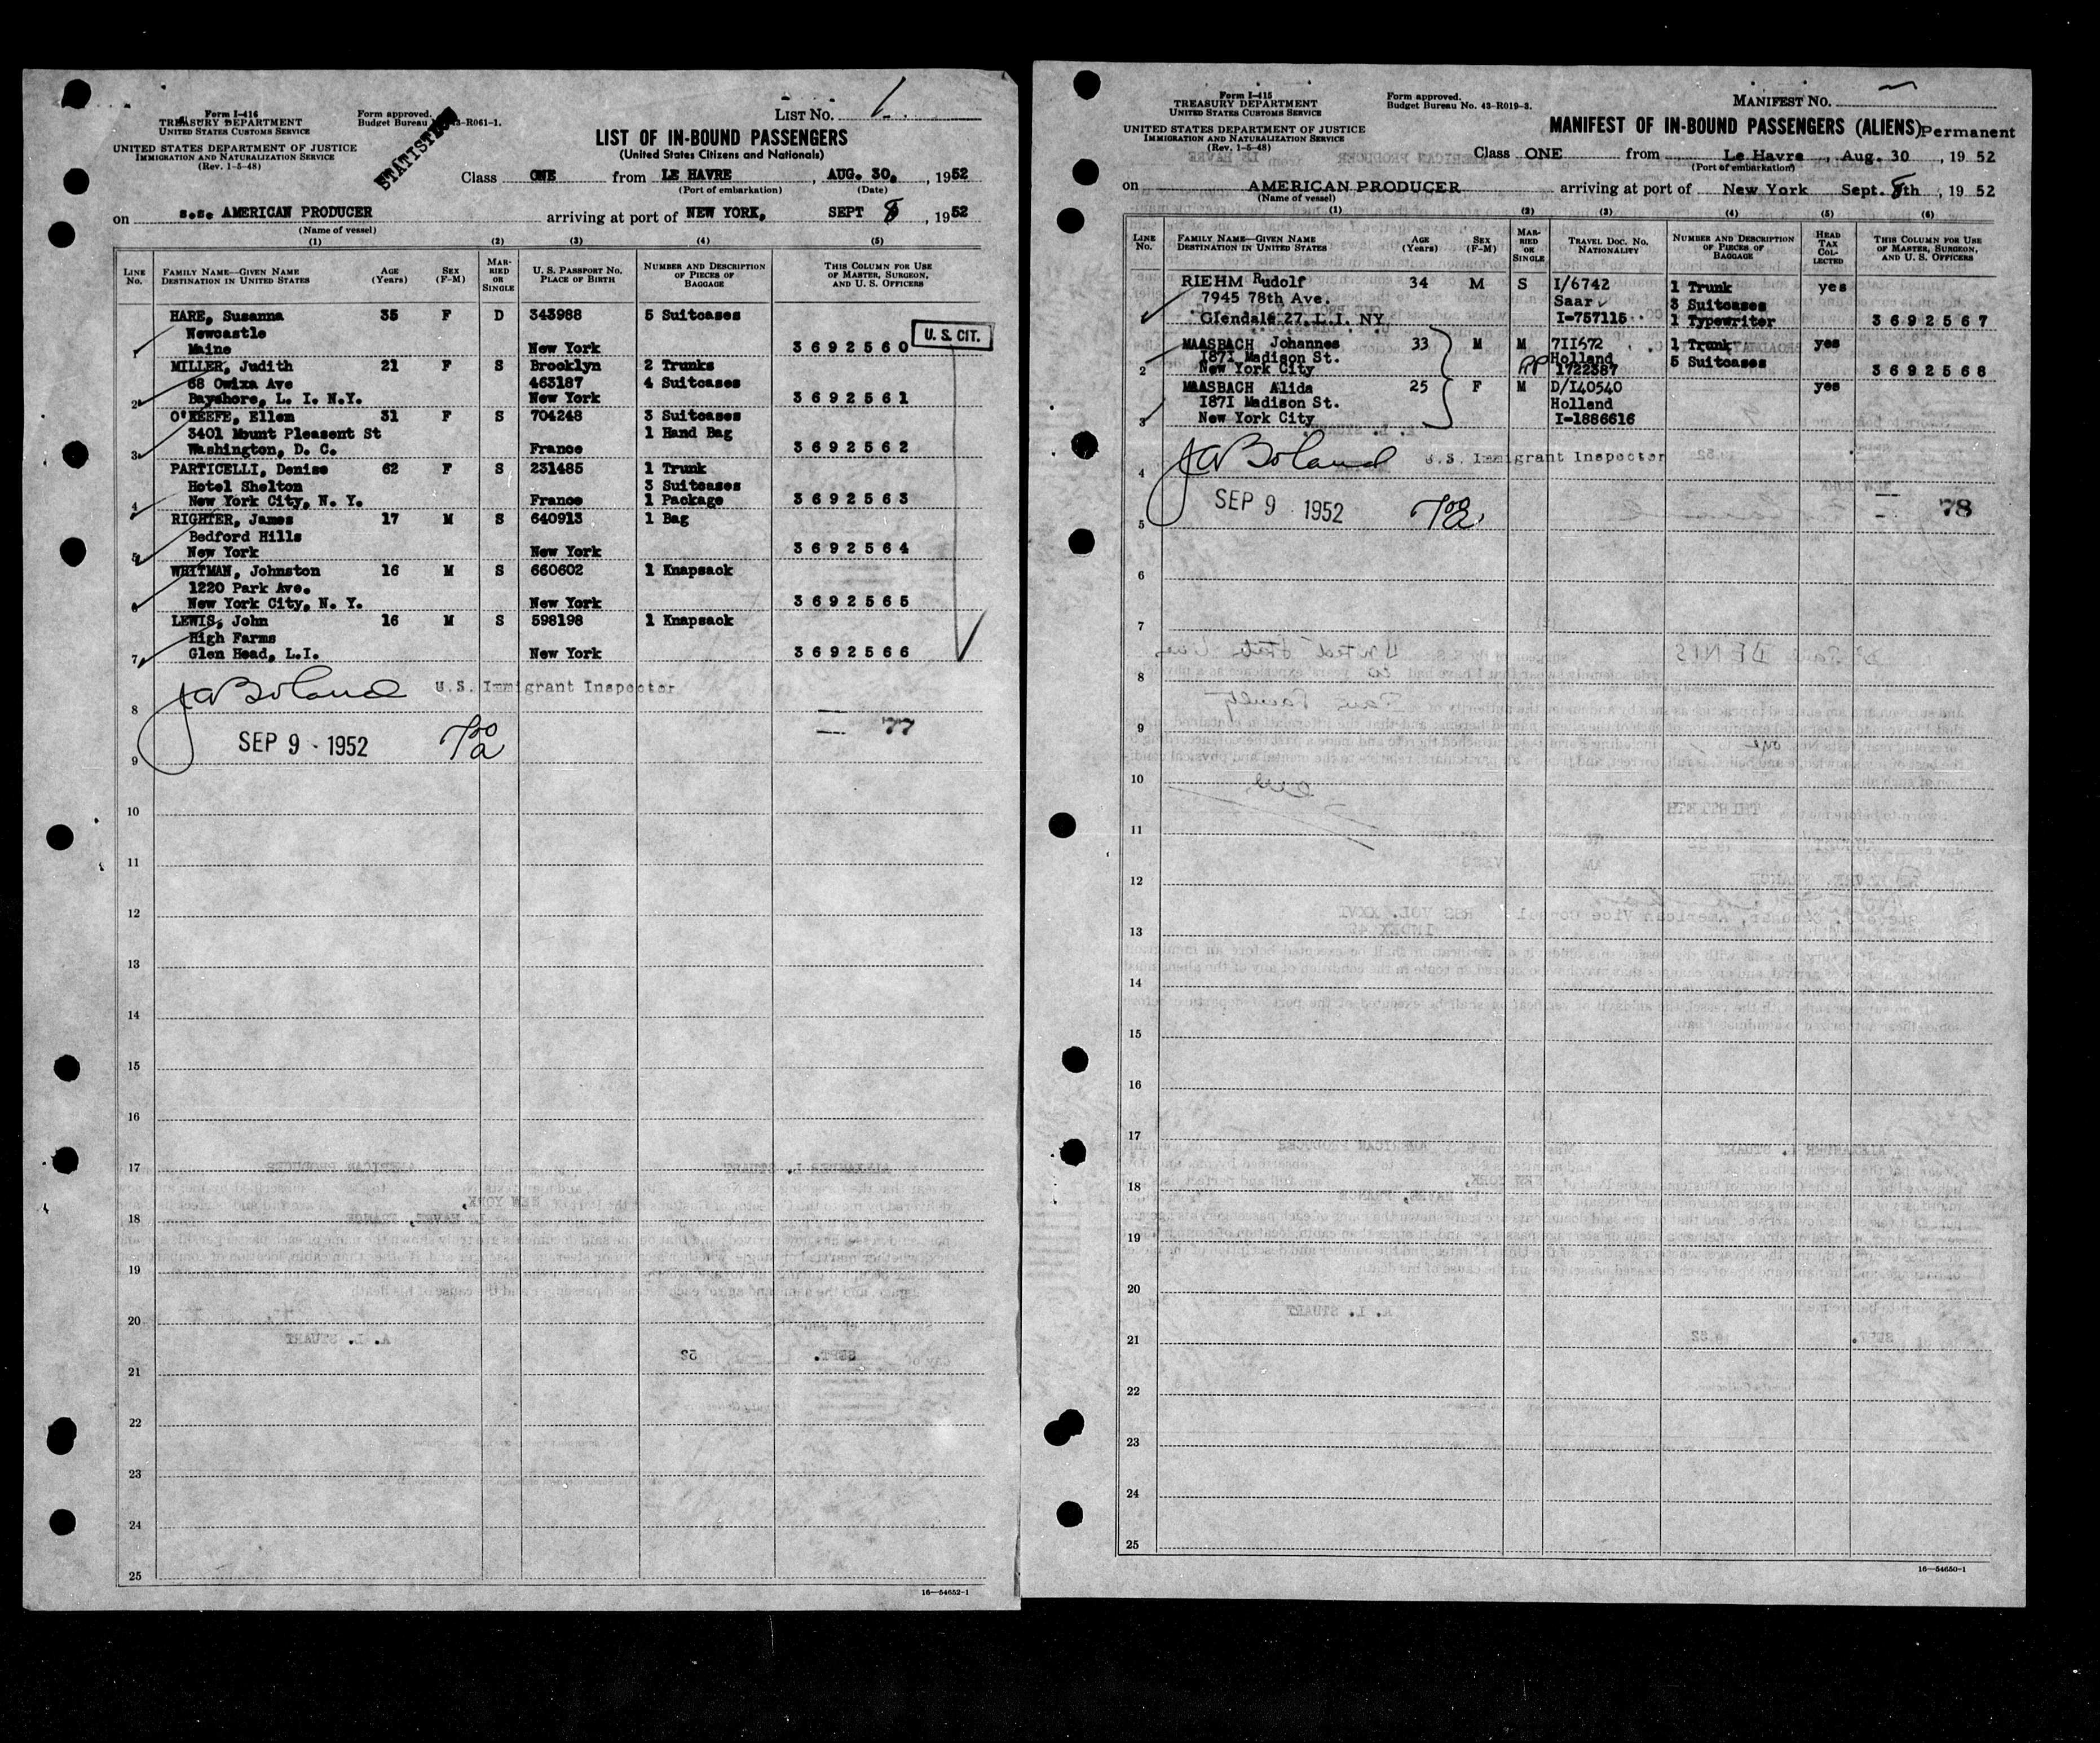 Form I-416
TREASURY DEPARTMENT
UNITED STATES CUSTOMS SERVICE
UNITED STATES DEPARTMENT OF JUSTICE
IMMIGRATION AND NATURALIZATION SERVICE
(Rev. 1-5-48)
Form approved.
Budget Bureau No. 43-R061-1.
STATISTICS
LIST NO. 1.
LIST OF IN-BOUND PASSENGERS
(United States Citizens and Nationals)
Class ONE from LE HAVRE, AUG. 30, 1952
(Port of embarkation) (Date)
on s.s. AMERICAN PRODUCER arriving at port of NEW YORK, SEPT 8, 1952
(Name of vessel)
(1) (2) (3) (4) (5)
LINE NO. FAMILY NAME—GIVEN NAME DESTINATION IN UNITED STATES AGE (Years) SEX (F-M) MARRIED OR SINGLE U. S. PASSPORT NO. PLACE OF BIRTH NUMBER AND DESCRIPTION OF PIECES OF BAGGAGE THIS COLUMN FOR USE OF MASTER, SURGEON, AND U. S. OFFICERS
HARE, Susanna 35 F D 343988 5 Suitcases
Newcastle
Maine New York 3692560
U. S. CIT.
MILLER, Judith 21 F S Brooklyn 2 Trunks
68 Owixa Ave 463187 4 Suitcases
2 Bayshore, L. I. N.Y. New York 3692561
O'KEEFE, Ellen 31 F S 704248 3 Suitcases
3401 Mount Pleasent St 1 Hand Bag
3 Washington, D. C. France 3692562
PARTICELLI, Denise 62 F S 231485 1 Trunk
Hotel Shelton 3 Suitcases
4 New York City, N. Y. France 1 Package 3692563
RIGHTER, James 17 M S 640913 1 Bag
Bedford Hills
5 New York New York 3692564
WHITMAN, Johnston 16 M S 660602 1 Knapsack
1220 Park Ave.
6 New York City, N. Y. New York 3692565
LEWIS, John 16 M S 598198 1 Knapsack
High Farms
7 Glen Head, L.I. New York 3692566
J W Boland U.S. Immigrant Inspector
8
77
SEP 9 - 1952
9
10
11
12
13
14
15
16
17
18
19
20
21
22
23
24
25
16—54652-1
Form I-415
TREASURY DEPARTMENT
UNITED STATES CUSTOMS SERVICE
UNITED STATES DEPARTMENT OF JUSTICE
IMMIGRATION AND NATURALIZATION SERVICE
(Rev. 1-5-48)
Form approved.
Budget Bureau No. 43-R019-3.
MANIFEST NO.
MANIFEST OF IN-BOUND PASSENGERS (ALIENS) Permanent
Class ONE from Le Havre, Aug. 30, 1952
(Port of embarkation)
on AMERICAN PRODUCER arriving at port of New York Sept. 8th, 1952
(Name of vessel)
(1) (2) (3) (4) (5) (6)
LINE NO. FAMILY NAME—GIVEN NAME DESTINATION IN UNITED STATES AGE (Years) SEX (F-M) MARRIED OR SINGLE TRAVEL DOC. NO. NATIONALITY NUMBER AND DESCRIPTION OF PIECES OF BAGGAGE HEAD TAX COLLECTED THIS COLUMN FOR USE OF MASTER, SURGEON, AND U. S. OFFICERS
RIEHM Rudolf 34 M S I/6742 1 Trunk yes
7945 78th Ave. Saar 3 Suitcases
Glendale 27, L.I. NY I-757115 1 Typewriter 3692567
MAASBACH Johannes 33 M M 7II672 1 Trunk yes
I87I Madison St. Holland 5 Suitcases
2 New York City 1722387 3692568
MAASBACH Alida 25 F M D/I40540 yes
I87I Madison St. Holland
3 New York City I-1886616
J W Boland U.S. Immigrant Inspector
4
SEP 9 1952 78
5
6
7
8
9
10
11
12
13
14
15
16
17
18
19
20
21
22
23
24
25
16—54650-1